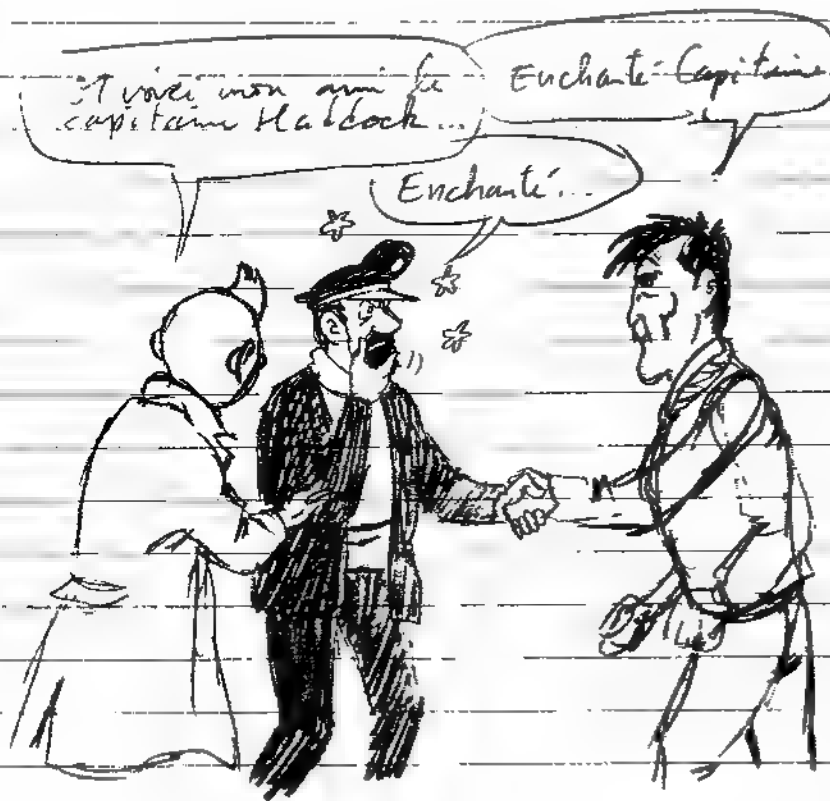 Et voici mon ami le
capitaine Haddock...
Enchanté Capitaine
Enchanté...